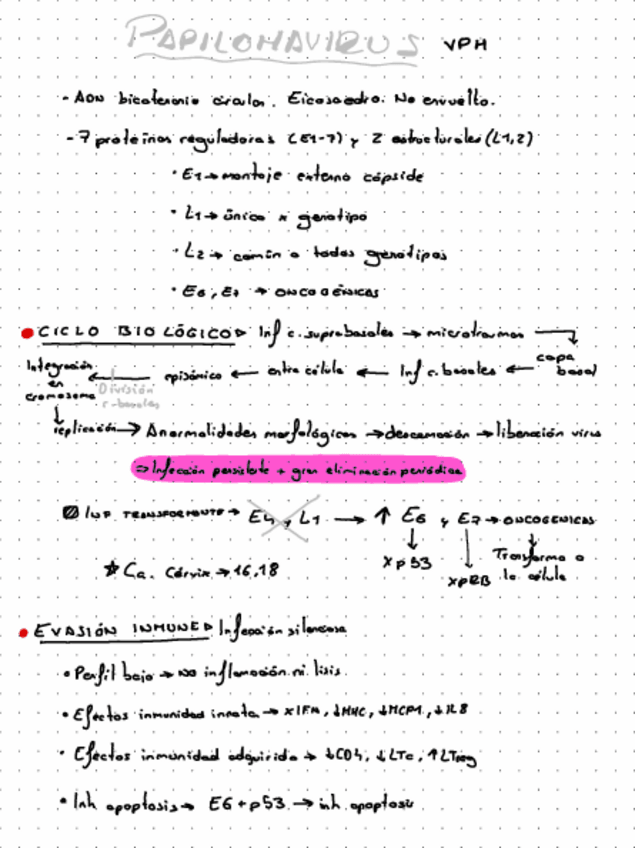 PAPILOMAVIRUS VPH
- ADN bicatenario circular. Eicosaedro. No envuelto.
- 7 proteínas reguladoras (E1-7) y 2 estructurales (L1,2)
· E1 → montaje externo cápside
· L1 → único x genotipo
· L2 → común a todos genotipos
· E6, E7 → ONCOGÉNICAS
• CICLO BIOLÓGICO▷ Inf c. suprabasales → microtraumas → capa basal
Integración en cromosoma ← episómico ← entra célula ← Inf c. basales ←
División c. basales
↳ replicación → Anormalidades morfológicas → descamación → liberación virus
⇒ Infección persistente + gran eliminación periódica
INF TRANSFORMANTE → E4 y L1 → ↑ E6 y E7 → ONCOGÉNICAS
x p53 xpRB Transforma a la célula
☆ Ca. Cérvix → 16,18
• EVASIÓN INMUNE▷ Infección silenciosa
• Perfil bajo → NO inflamación ni lisis.
• Efectos inmunidad innata → xIFN, ↓MHC, ↓MCP1, ↓IL8
· Efectos inmunidad adquirida → ↓CD4, ↓LTc, ↑LTreg
• Inh apoptosis → E6 + p53 → inh. apoptosis